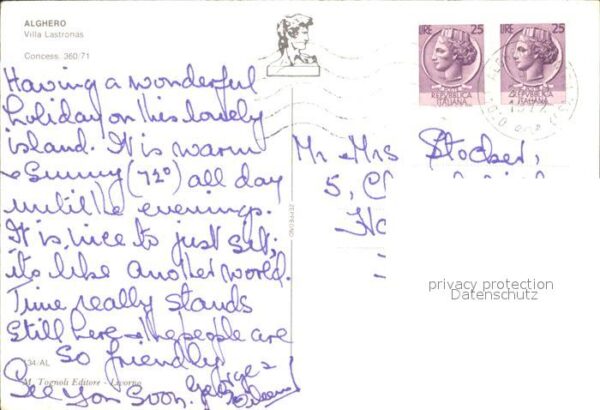 ALGHERO
Villa Lastronas
Concess. 360/71
LIRE 25
REPVBBLICA
ITALIANA
LIRE 25
REPVBBLICA
ITALIANA
Having a wonderful
holiday on this lovely
island. It is warm
& Sunny (72°) all day
until the evenings.
It is nice to just sit;
its like another world.
Time really stands
Still here & the people are
So friendly
See You Soon. George &
Mr & Mrs Stocker,
5, C
Ho
privacy protection
Datenschutz
34/AL
M. Tognoli Editore - Livorno